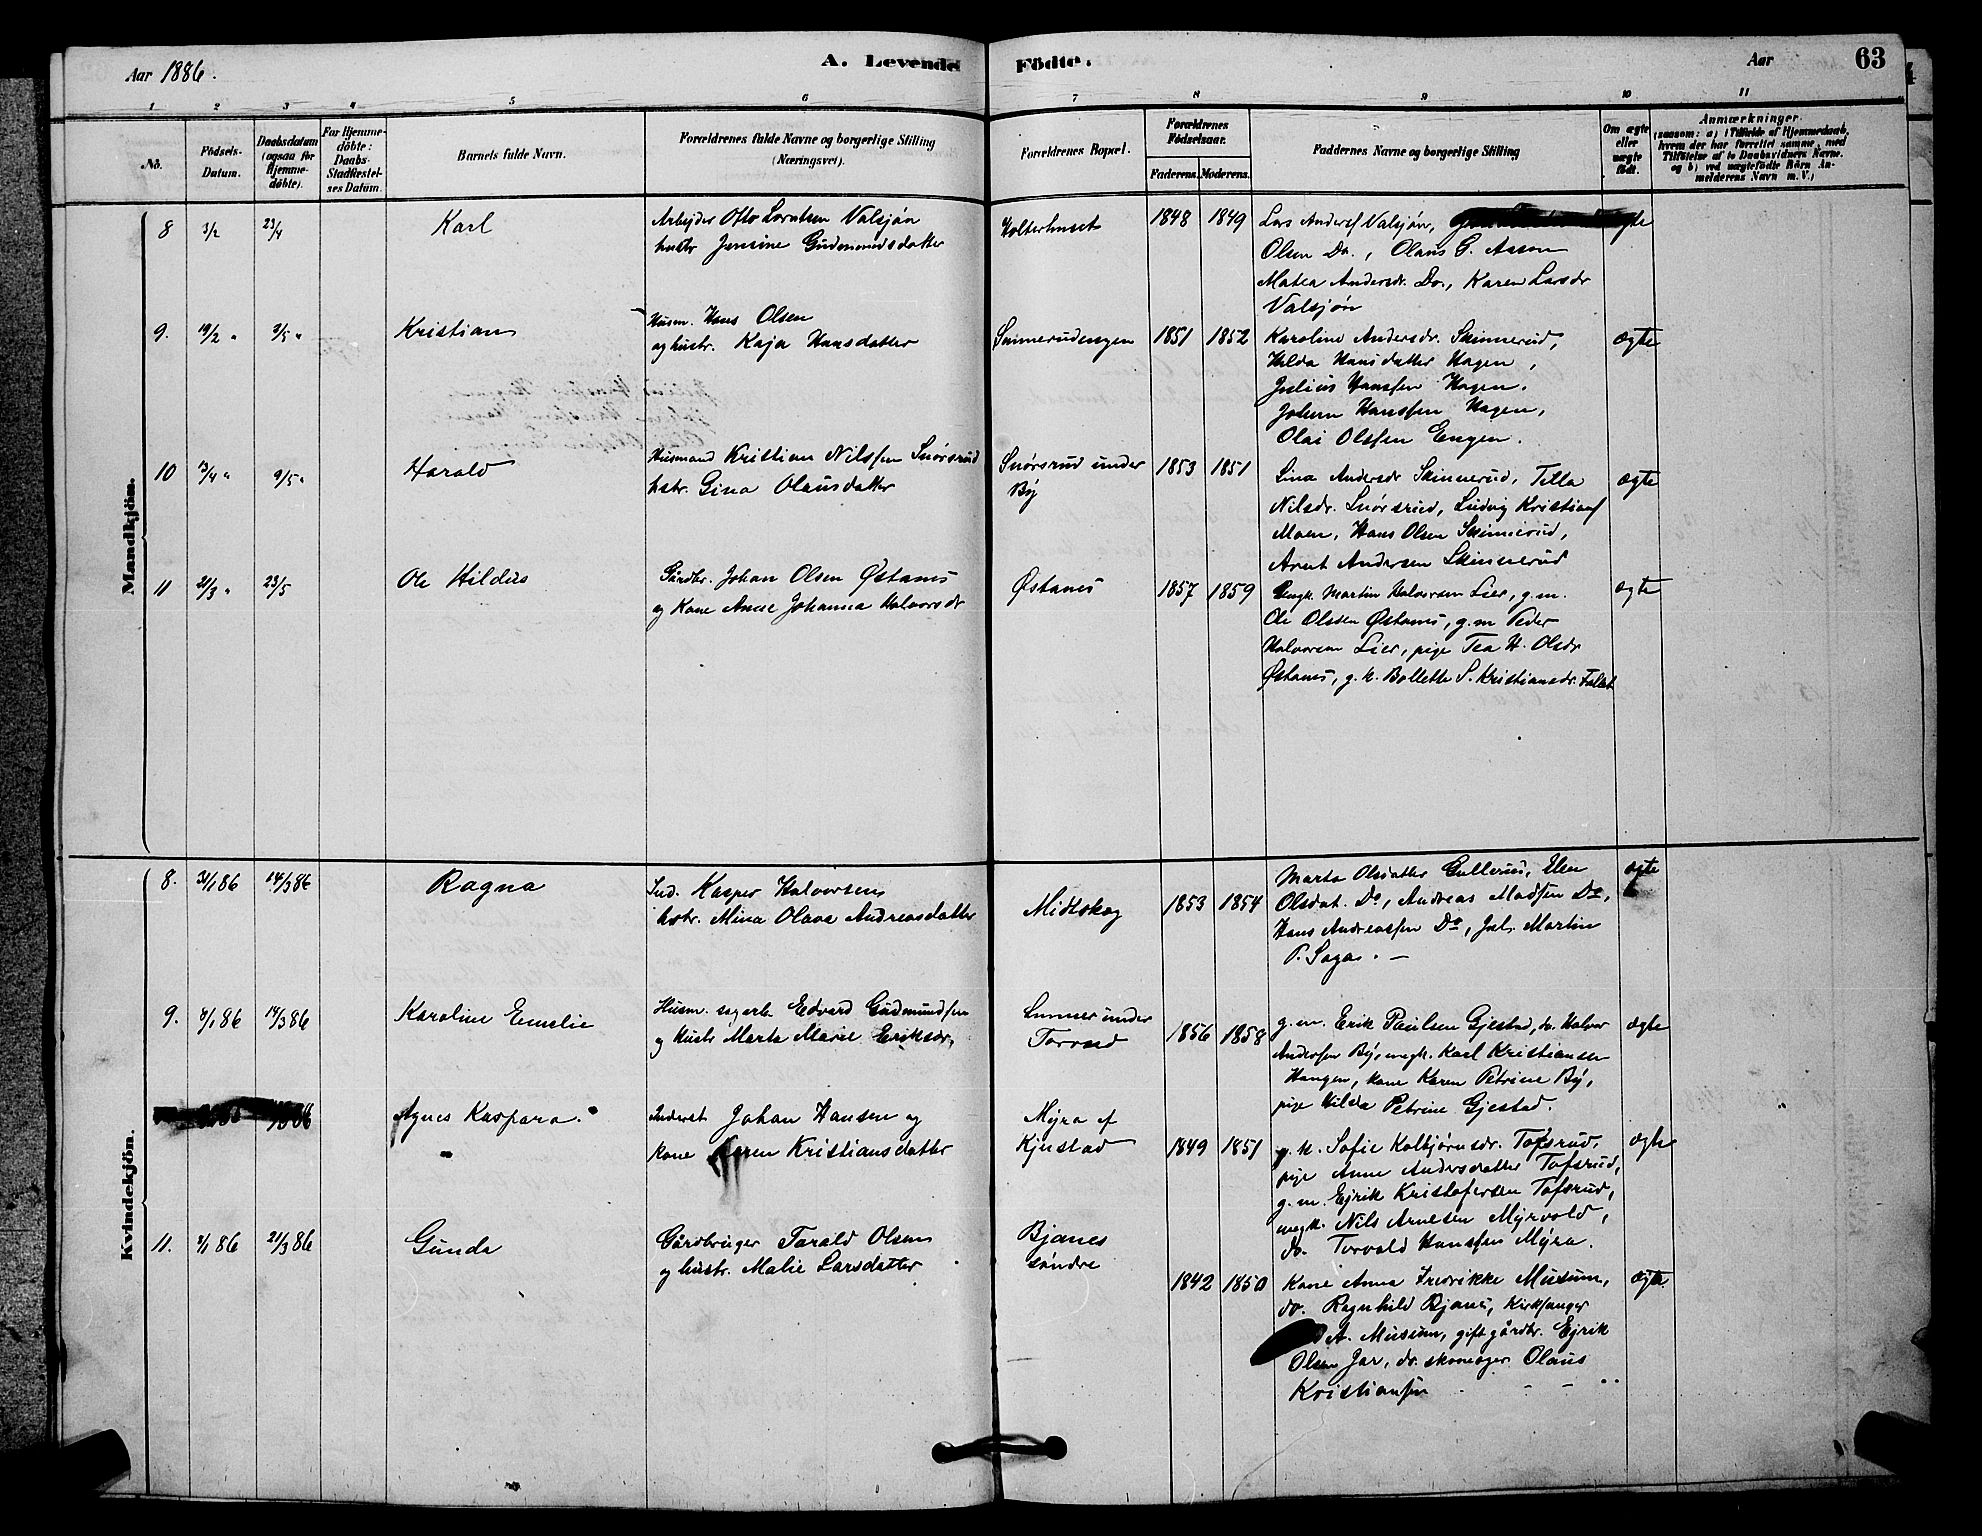 Aar 1886.
A. Levende Födte.
Aar
63
1 2 3 4 5 6 7 8 9 10 11
No.
Födsels-Datum.
Daabsdatum (ogsaa for Hjemme-döbte).
For Hjemme-döbte: Daabs-Stadfæstel-ses Datum.
Barnets fulde Navn.
Forældrenes fulde Navne og borgerlige Stilling (Næringsvei).
Forældrenes Bopæl.
Forældrenes Födselsaar.
Faderens. Moderens.
Faddernes Navne og borgerlige Stilling
Om ægte eller uægte födt.
Anmærkninger.
(saasom: a) i Tilfælde af Hjemmedaab, hvem der har forrettet samme, med Tilföielse af to Daabsvidners Navne. og b) ved uægtefödte Börn An-melderens Navn m. V.)
Mandkjön.
8 3/2 23/4 Karl
Arbejder Otto Lorntsen Valsjön
hustr Jensine Gudmundsdatter
Holterhuset 1848 1849
Lars Andersf Valsjön,
Olsen Do., Olaus G. Aasen
Matea Andersdr. Do., Karen Larsdr
Valsjön
ægte
9. 19/2 " 9/5 " Kristian
Husm. Hans Olsen
og hustr. Kaja Hansdatter
Skinnerudengen 1851 1852
Karoline Andersdr. Skinnerud,
Hilda Hansdatter Hagen,
Julius Hansfen Hagen,
Johan Hansfen Hagen,
Olai Olsfen Engen.
ægte
10 13/4 " 9/5 " Harald
Husmand Kristian Nilsfen Snørsrud
hstr. Gina Olausdatter
Snørsrud under
By
1853 1851
Lina Andersdr Skinnerud, Tilla
Nilsdr. Snørsrud, Ludvig Kristianf
Moen, Hans Olsen Skinnerud,
Arnt Andersen Skinnerud
ægte
11 21/3 " 23/5 Ole Hildus
Gårdbr. Johan Olsen Østanes
og Kone Anne Johanna Halvorsdr
Østanes 1857 1859
Ungk. Martin Halvorsen Lier, g.m.
Ole Olsfen Østanes, g.m Peder
Halvorsen Lier, pige Tea H. Olsdr
Østanes, g. k. Bollette S. Kristiansdr. Fallet
ægte
Kvindekjön.
8. 31/1 86 14/3 86 Ragna
Ind. Kasper Halvorsen
hstr. Mina Olava Andreasdatter
Midtskog 1853 1854
Marta Olsdatter Gullerud, Elen
Olsdat. Do, Andreas Madsfen Do,
Hans Andreasfen Do, Joh. Martin
P. Saga. —
ægte
9. 8/1 86 14/3 86 Karoline Emelie
Husm. Edvard Gudmundsfen
og Hustr Marta Marie Eriksdr.
Sunner under
Torrud
1856 1858
g.m. Erik Paulsen Gjestad, do. Halvor
Andersfen By, ungk. Karl Kristiansen
Haugen, kone Karen Petrine By,
pige Hilda Petrine Gjestad.
ægte
Agnes Kaspara.
Inderst Johan Hansen og
Kone Karen Kristiansdatter
Myra af
Kjustad
1849 1851
g. k. Sofie Kolbjørnsdr. Tofsrud,
pige Anne Andersdatter Tofsrud,
g.m. Ejrik Kristofersen Tofsrud,
ungk. Nils Arnesen Myrvold,
do. Torvald Hansfen Myra.
ægte
11. 9/1 86 21/3 86 Gunda
Gårdbruger Torald Olsen
og hustr. Malie Larsdatter
Bjanes
søndre
1842 1850
Kone Anna Fredrikke Musum,
do. Ragnhild Bjanes, Kirksanger
A. Musum, gift gårdbr. Ejrik
Olsen Jar, do. skomager Olaus
Kristiansfen
ægte